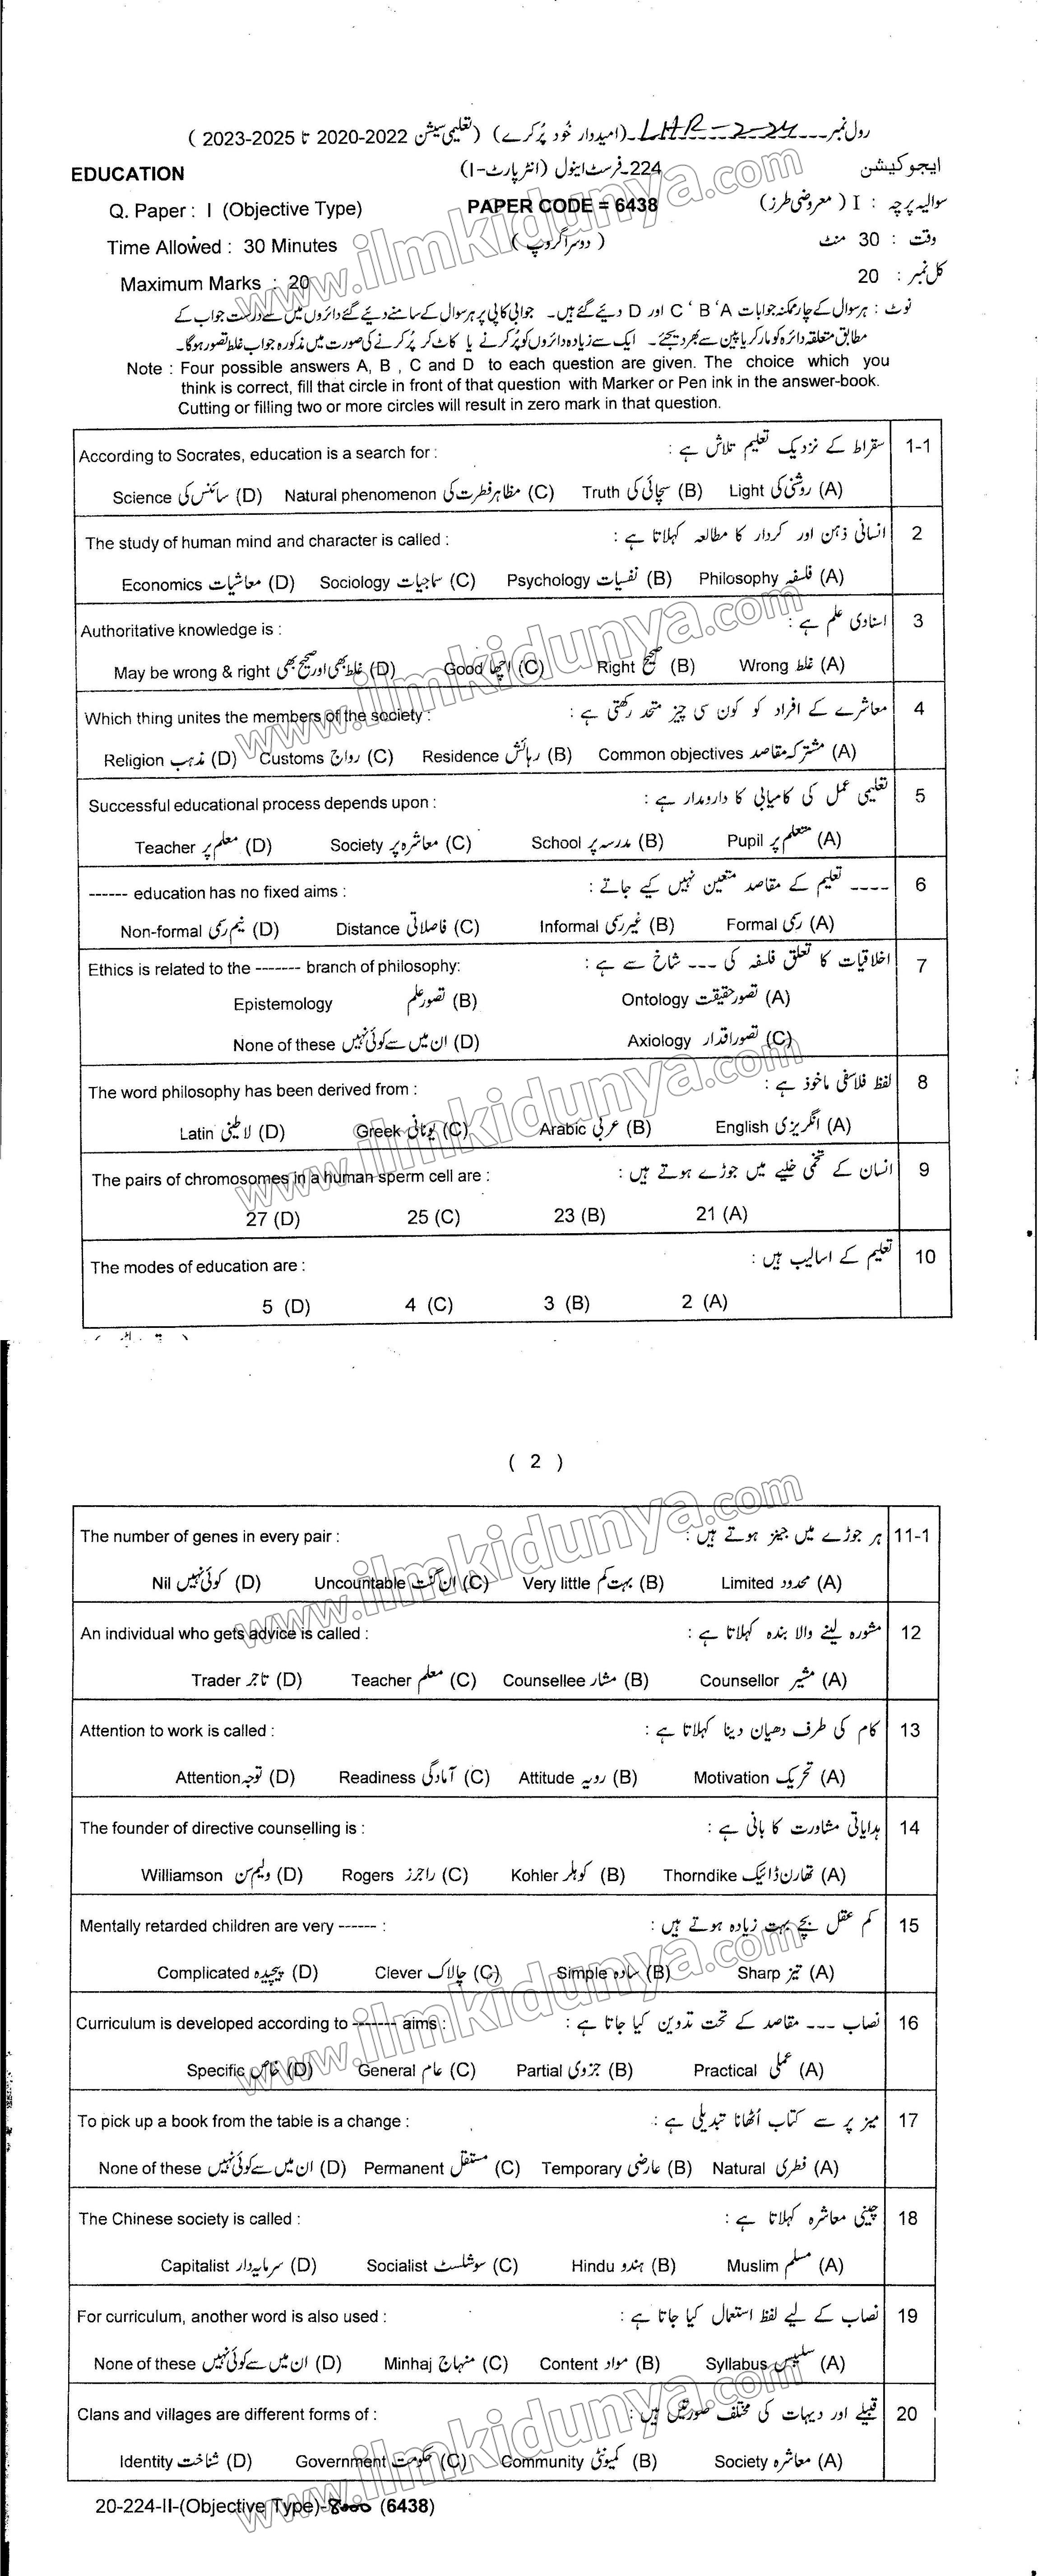 رول نمبر ---LHR-2-24--- (امیدوار خود پُر کرے) (تعلیمی سیشن 2022-2020 تا 2025-2023)
EDUCATION 224-فرسٹ اینول (انٹر پارٹ-I) ایجوکیشن
Q. Paper : I (Objective Type) PAPER CODE = 6438 سوالیہ پرچہ : I (معروضی طرز)
Time Allowed : 30 Minutes (دوسرا گروپ) وقت : 30 منٹ
Maximum Marks : 20 کل نمبر : 20
نوٹ : ہر سوال کے چار ممکنہ جوابات A ‘B ‘C اور D دیئے گئے ہیں۔ جوابی کاپی پر ہر سوال کے سامنے دیئے گئے دائروں میں سے درست جواب کے
مطابق متعلقہ دائرہ کو مارکر یا پین سے بھر دیجئے۔ ایک سے زیادہ دائروں کو پُر کرنے یا کاٹ کر پُر کرنے کی صورت میں مذکورہ جواب غلط تصور ہوگا۔
Note : Four possible answers A, B , C and D to each question are given. The choice which you
think is correct, fill that circle in front of that question with Marker or Pen ink in the answer-book.
Cutting or filling two or more circles will result in zero mark in that question.
According to Socrates, education is a search for : سقراط کے نزدیک تعلیم تلاش ہے : 1-1
Science سائنس کی (D) Natural phenomenon مظاہر فطرت کی (C) Truth سچائی کی (B) Light روشنی کی (A)
The study of human mind and character is called : انسانی ذہن اور کردار کا مطالعہ کہلاتا ہے : 2
Economics معاشیات (D) Sociology سماجیات (C) Psychology نفسیات (B) Philosophy فلسفہ (A)
Authoritative knowledge is : اسنادی علم ہے : 3
May be wrong & right غلط بھی اور صحیح بھی (D) Good اچھا (C) Right صحیح (B) Wrong غلط (A)
Which thing unites the members of the society : معاشرے کے افراد کو کون سی چیز متحد رکھتی ہے : 4
Religion مذہب (D) Customs رواج (C) Residence رہائش (B) Common objectives مشترکہ مقاصد (A)
Successful educational process depends upon : تعلیمی عمل کی کامیابی کا دارومدار ہے : 5
Teacher معلم پر (D) Society معاشرہ پر (C) School مدرسہ پر (B) Pupil متعلم پر (A)
------ education has no fixed aims : ---- تعلیم کے مقاصد متعین نہیں کیے جاتے : 6
Non-formal نیم رسمی (D) Distance فاصلاتی (C) Informal غیر رسمی (B) Formal رسمی (A)
Ethics is related to the ------- branch of philosophy: اخلاقیات کا تعلق فلسفہ کی --- شاخ سے ہے : 7
Epistemology تصور علم (B) Ontology تصور حقیقت (A)
None of these ان میں سے کوئی نہیں (D) Axiology تصور اقدار (C)
The word philosophy has been derived from : لفظ فلاسفی ماخوذ ہے : 8
Latin لاطینی (D) Greek یونانی (C) Arabic عربی (B) English انگریزی (A)
The pairs of chromosomes in a human sperm cell are : انسان کے تخمی خلیے میں جوڑے ہوتے ہیں : 9
27 (D) 25 (C) 23 (B) 21 (A)
The modes of education are : تعلیم کے اسالیب ہیں : 10
5 (D) 4 (C) 3 (B) 2 (A)
( 2 )
The number of genes in every pair : ہر جوڑے میں جینز ہوتے ہیں : 11-1
Nil کوئی نہیں (D) Uncountable ان گنت (C) Very little بہت کم (B) Limited محدود (A)
An individual who gets advice is called : مشورہ لینے والا بندہ کہلاتا ہے : 12
Trader تاجر (D) Teacher معلم (C) Counsellee مشار (B) Counsellor مشیر (A)
Attention to work is called : کام کی طرف دھیان دینا کہلاتا ہے : 13
Attention توجہ (D) Readiness آمادگی (C) Attitude رویہ (B) Motivation تحریک (A)
The founder of directive counselling is : ہدایاتی مشاورت کا بانی ہے : 14
Williamson ولیم سن (D) Rogers راجرز (C) Kohler کوہلر (B) Thorndike تھارن ڈائیک (A)
Mentally retarded children are very ------ : کم عقل بچے بہت زیادہ ہوتے ہیں : 15
Complicated پیچیدہ (D) Clever چالاک (C) Simple سادہ (B) Sharp تیز (A)
Curriculum is developed according to ------- aims : نصاب --- مقاصد کے تحت تدوین کیا جاتا ہے : 16
Specific خاص (D) General عام (C) Partial جزوی (B) Practical عملی (A)
To pick up a book from the table is a change : میز پر سے کتاب اُٹھانا تبدیلی ہے : 17
None of these ان میں سے کوئی نہیں (D) Permanent مستقل (C) Temporary عارضی (B) Natural فطری (A)
The Chinese society is called : چینی معاشرہ کہلاتا ہے : 18
Capitalist سرمایہ دار (D) Socialist سوشلسٹ (C) Hindu ہندو (B) Muslim مسلم (A)
For curriculum, another word is also used : نصاب کے لیے لفظ استعمال کیا جاتا ہے : 19
None of these ان میں سے کوئی نہیں (D) Minhaj منہاج (C) Content مواد (B) Syllabus سلیبس (A)
Clans and villages are different forms of : قبیلے اور دیہات کی مختلف صورتیں ہیں : 20
Identity شناخت (D) Government حکومت (C) Community کمیونٹی (B) Society معاشرہ (A)
20-224-II-(Objective Type)-8000 (6438)
www.ilmkidunya.com
www.ilmkidunya.com
www.ilmkidunya.com
www.ilmkidunya.com
www.ilmkidunya.com
www.ilmkidunya.com